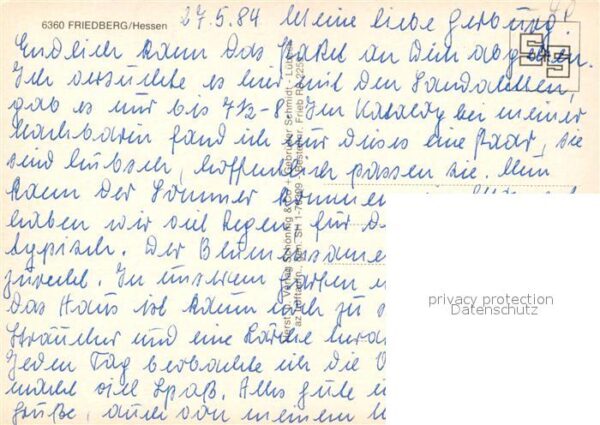 6360 FRIEDBERG/Hessen
27.5.84 Meine liebe
Endlich kann das Paket an Dich abgehen.
Ich versuchte es mir mit den Sandaletten,
gab es nur bis 7½-8. Im Katalog bei meiner
Nachbarin fand ich nur dieses eine Paar, sie
sind hübsch, hoffentlich passen sie. Nun
kann der Sommer kommen
haben wir viel Regen für D
typisch. Der Blumensame
zurecht. In unserem Garten
das Haus ist kaum noch zu s
Sträucher und eine Lärche
Jeden Tag beobachte ich die
macht viel Spaß. Alles gute
Grüße, auch von meinem
privacy protection
Datenschutz